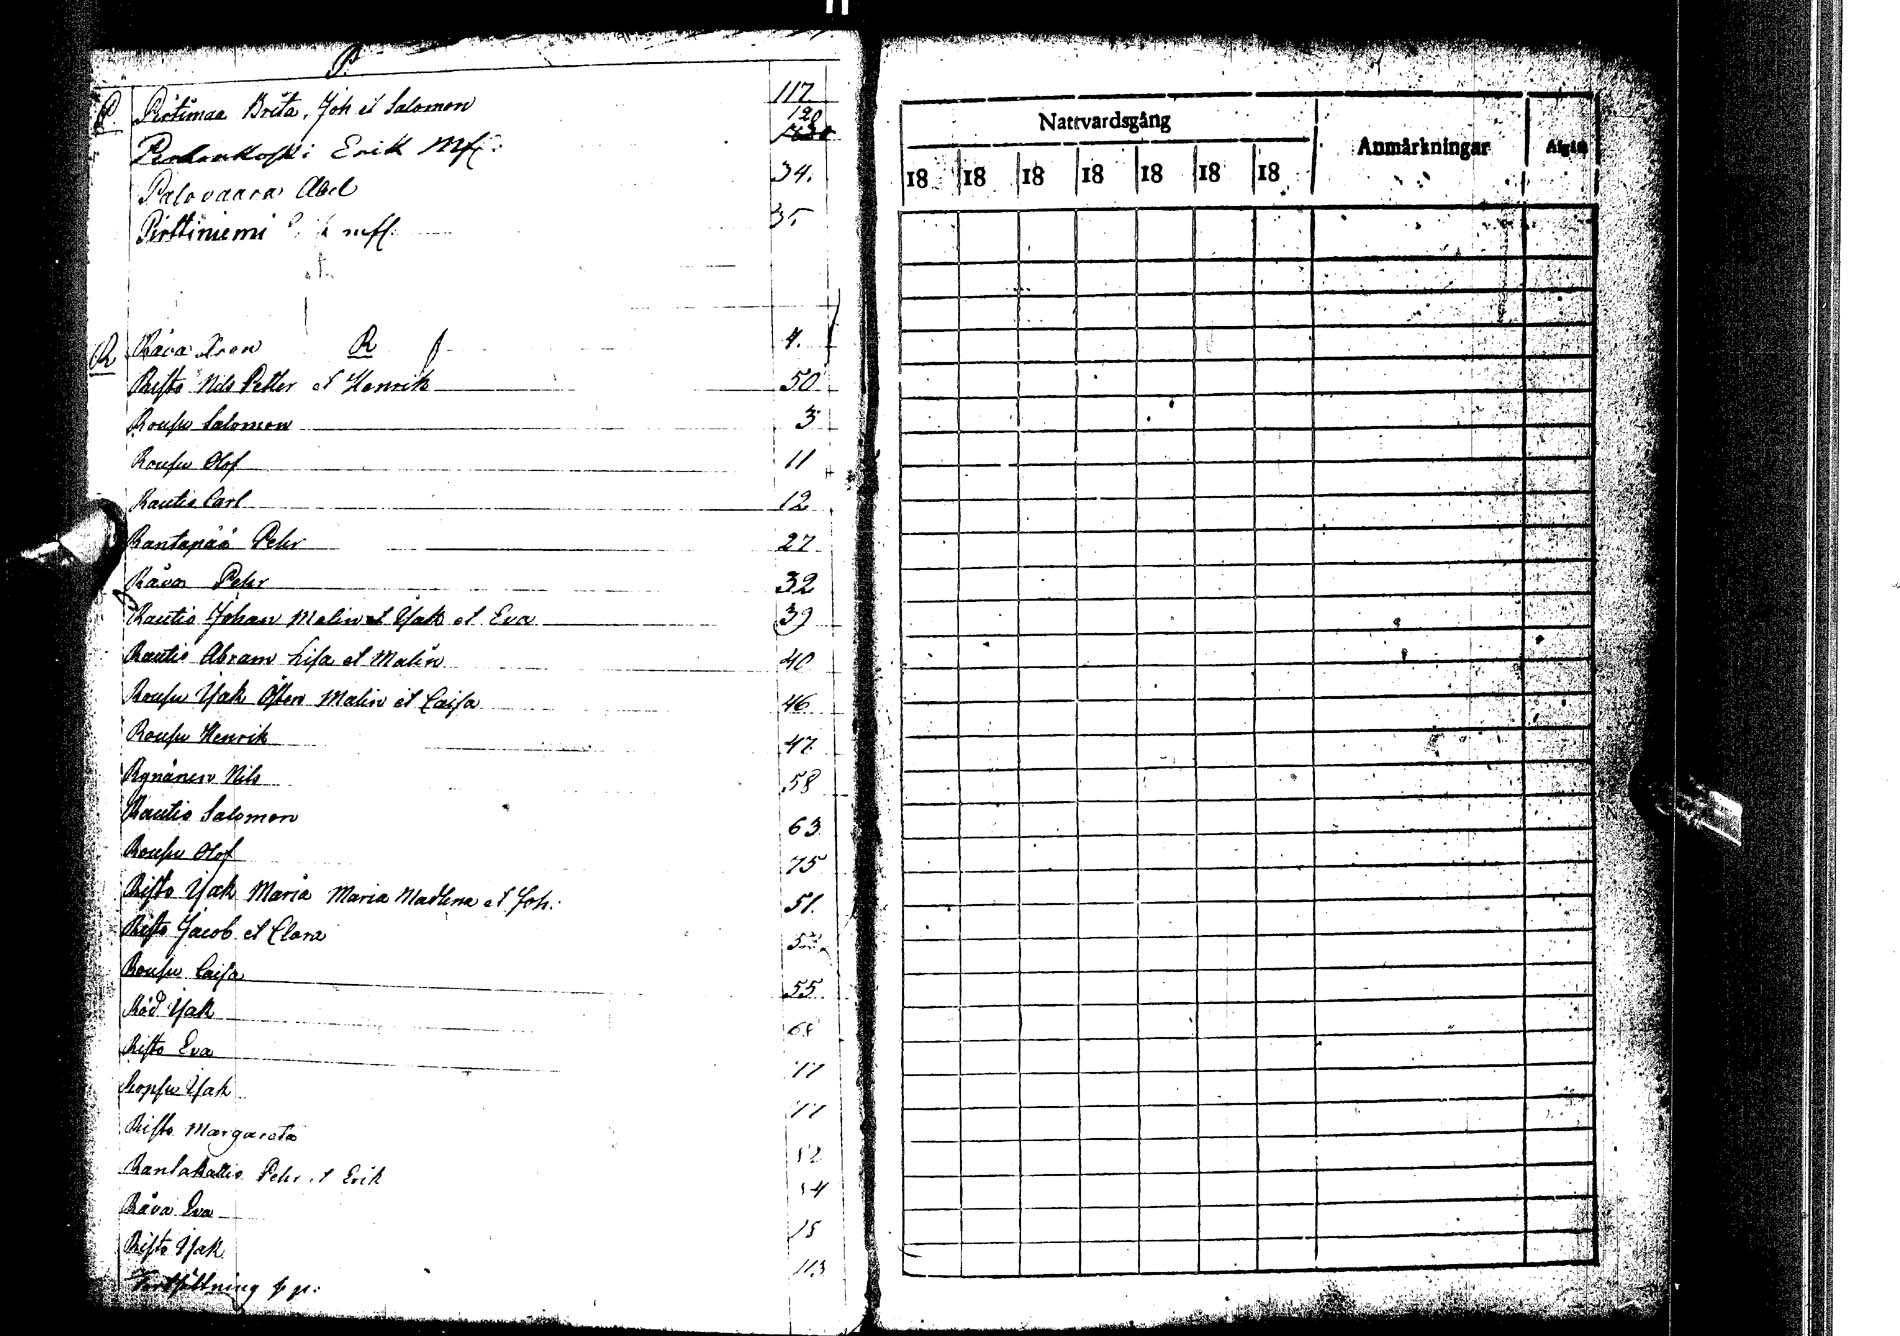 P.
P Pirtimaa Brita, Joh et Salomon 117
Erik Mfl: 128
Palovaara Abel 34.
Pirttiniemi mfl. 35.
R
R Råva Aron 4.
Risto Nils Petter et Henrik 50
Roufu Salomon 3
Roufu Olof 11
Rautio Carl 12
Rantapää Pehr 27
Råva Pehr 32
Rautio Johan Malin et Isak et Eva 39
Rautio Abram Lisa et Malin 40
Roufu Isak Östen Malin et Caisa 46
Roufu Henrik 47
Rynänen Nils 58
Rautio Salomon 63
Roufu Olof 75
Risto Isak Maria Maria Madlena et Joh: 51.
Risto Jacob et Clara
Roufu Caisa 55
Röd Isak 68
Risto Eva 77
Isak 77
Risto Margareta 52
Rantakallio Pehr et Erik
Råva Eva 15
Risto Isak 113
Fortsättning p p:
Nattvardsgång
Anmärkningar
18 18 18 18 18 18 18